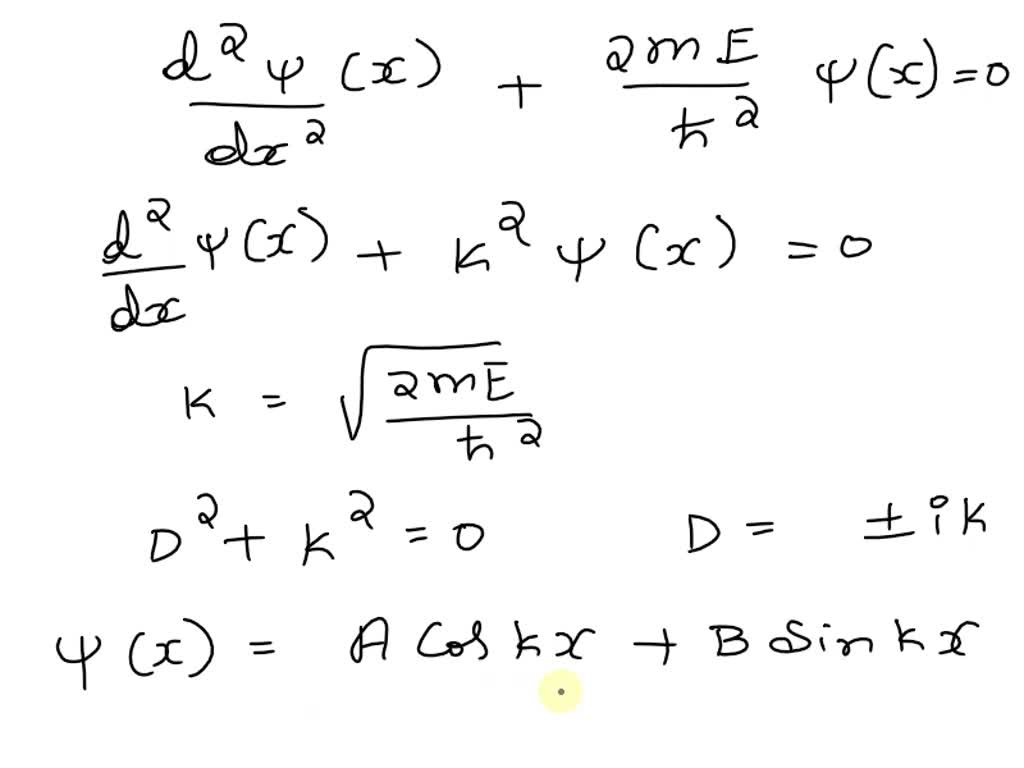 d²ψ(x)/dx² + 2mE/ħ² ψ(x) = 0
d²/dx ψ(x) + k² ψ(x) = 0
k = √(2mE/ħ²)
D² + k² = 0 D = ± ik
ψ(x) = A Cos kx + B Sin kx